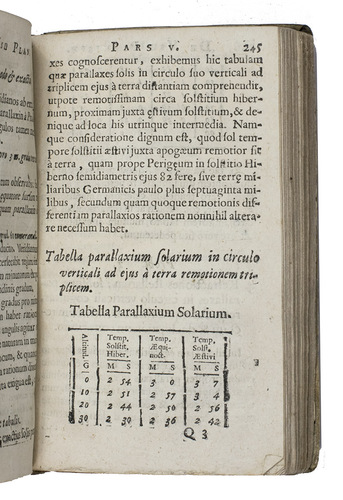 PARS V. 245
xes cognoscerentur, exhibemus hic tabulam
quæ parallaxes solis in circulo suo verticali ad
triplicem ejus à terra distantiam comprehendit,
utpote remotissimam circa solstitium hiber-
num, proximam juxta æstivum solstitium, & de-
nique ad loca his utrinque intermedia. Nam-
que consideratione dignum est, quòd sol tem-
pore solstitii æstivi juxta apogæum remotior sit
à terra, quam prope Perigeum in solstitio Hi-
berno semidiametris ejus 82 fere, sive terræ mi-
liaribus Germanicis paulo plus septuaginta mi-
libus, secundum quam quoque remotionis dif-
ferentiam parallaxios rationem nonnihil altera-
re necessum habet.
Tabella parallaxium solarium in circulo
verticali ad ejus à terra remotionem tri-
plicem.
Tabella Parallaxium Solarium.
Altitudo Temp. Solstit. Hiber. Temp. Æqui- noct. Temp. Solst. Æstivi
G M S M S M S
0 2 54 3 0 3 7
10 2 51 2 57 3 4
20 2 44 2 50 2 56
30 2 30 2 36 2 42
Q 3